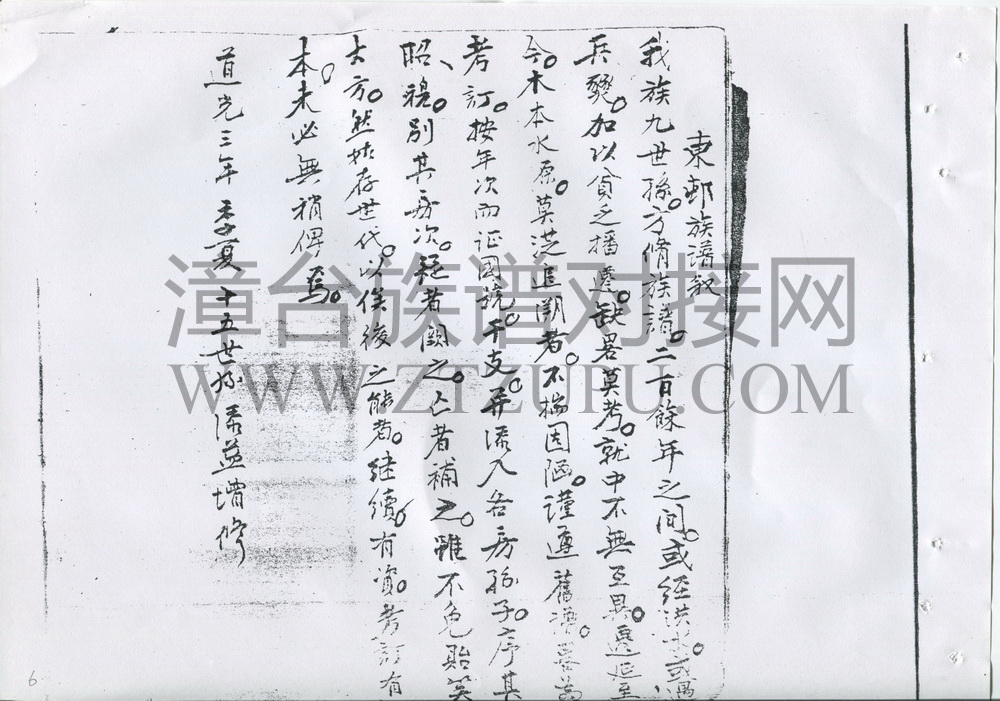 東郵族譜敘
我族九世孫方脩族譜。二百餘年之间。或經洪水。或遇
兵燹。加以貧乏播遷。缺畧莫考。就中不無互異。遷延至
今。木本水原。莫從追溯者。不揣因陋。謹遵舊譜。畧為
考訂。按年次而证国號。干支。并添入各房孫子。序其
昭、穆。別其房次。疑者闕之。亡者補之。雖不免貽笑
大方。然姑存世代。以俟後之能者。继續。有資。考訂有
本。未必無稍俾焉。
道光三年季夏十五世孫添益增修
漳台族谱对接网
WWW.ZTZUPU.COM
6